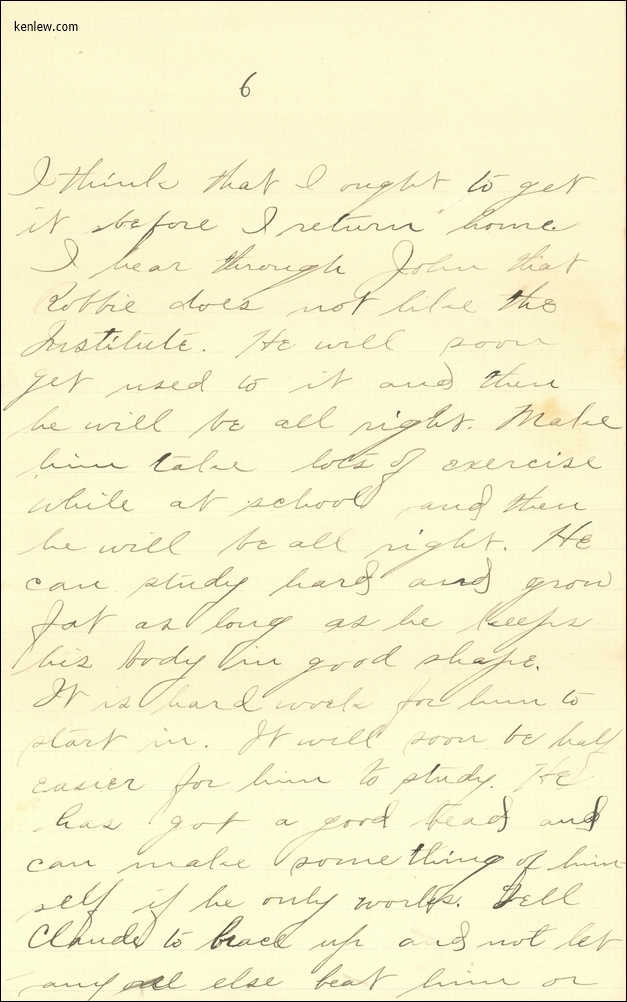 kenlew.com
6
I think that I ought to get
it before I return home.
I hear through John that
Robbie does not like the
Institute. He will soon
get used to it and then
he will be all right. Make
him take lots of exercise
while at school and then
he will be all right. He
can study hard and grow
fat as long as he keeps
his body in good shape.
It is hard work for him to
start in. It will soon be half
easier for him to study. He
has got a good head and
can make something of him-
self if he only works. Tell
Claude to brace up and not let
any one else beat him or